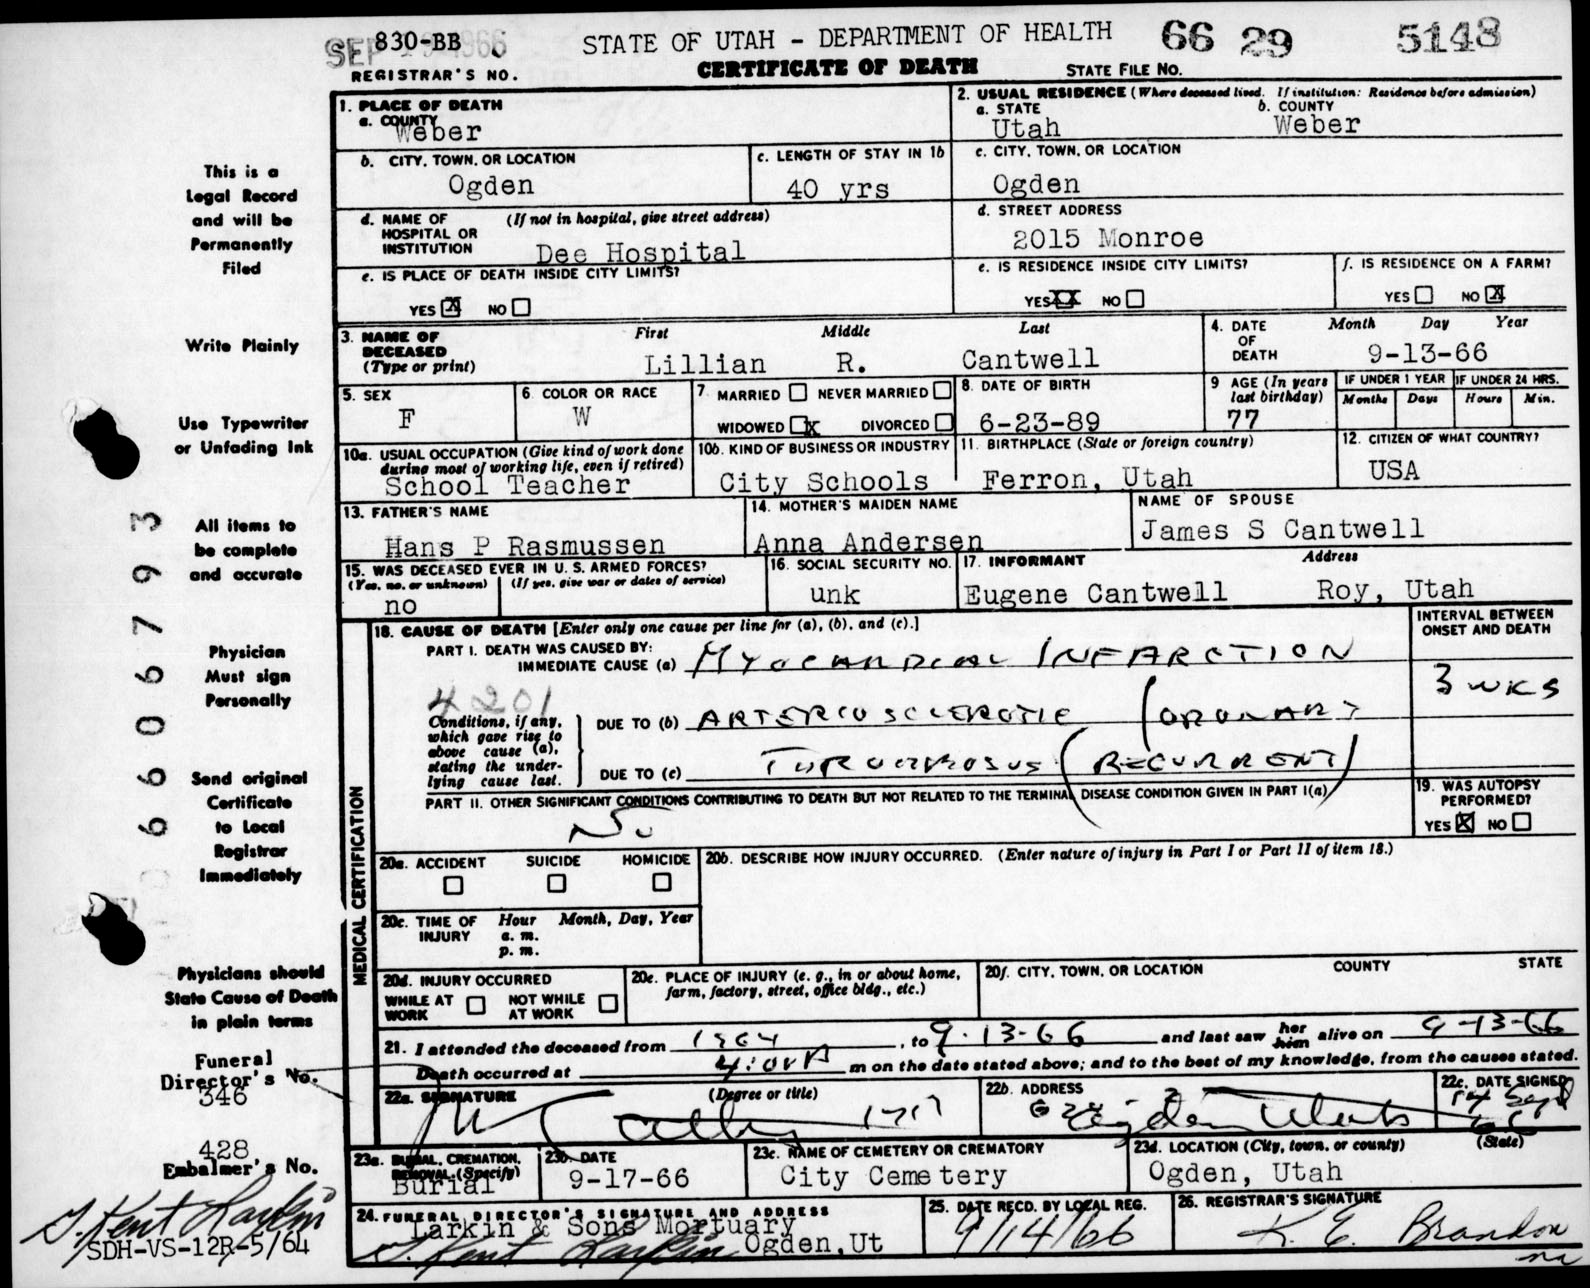 SEP 1966 830-BB STATE OF UTAH - DEPARTMENT OF HEALTH 66 29 5148
REGISTRAR'S NO. CERTIFICATE OF DEATH STATE FILE NO.
1. PLACE OF DEATH
a. COUNTY
Weber
2. USUAL RESIDENCE (Where deceased lived. If institution: Residence before admission)
a. STATE b. COUNTY
Utah Weber
b. CITY, TOWN, OR LOCATION
Ogden
c. LENGTH OF STAY IN 1b
40 yrs
c. CITY, TOWN, OR LOCATION
Ogden
d. NAME OF (If not in hospital, give street address)
HOSPITAL OR
INSTITUTION
Dee Hospital
d. STREET ADDRESS
2015 Monroe
e. IS PLACE OF DEATH INSIDE CITY LIMITS?
YES X NO
e. IS RESIDENCE INSIDE CITY LIMITS?
YES X NO
f. IS RESIDENCE ON A FARM?
YES NO X
3. NAME OF First Middle Last
DECEASED
(Type or print) Lillian R. Cantwell
4. DATE Month Day Year
OF
DEATH 9-13-66
5. SEX
F
6. COLOR OR RACE
W
7 MARRIED NEVER MARRIED
WIDOWED X DIVORCED
8. DATE OF BIRTH
6-23-89
9 AGE (In years
last birthday)
77
IF UNDER 1 YEAR IF UNDER 24 HRS.
Months Days Hours Min.
10a. USUAL OCCUPATION (Give kind of work done
during most of working life, even if retired)
School Teacher
10b. KIND OF BUSINESS OR INDUSTRY
City Schools
11. BIRTHPLACE (State or foreign country)
Ferron, Utah
12. CITIZEN OF WHAT COUNTRY?
USA
13. FATHER'S NAME
Hans P Rasmussen
14. MOTHER'S MAIDEN NAME
Anna Andersen
NAME OF SPOUSE
James S Cantwell
15. WAS DECEASED EVER IN U. S. ARMED FORCES?
(Yes, no, or unknown) (If yes, give war or dates of service)
no
16. SOCIAL SECURITY NO.
unk
17. INFORMANT Address
Eugene Cantwell Roy, Utah
18. CAUSE OF DEATH [Enter only one cause per line for (a), (b), and (c).]
PART I. DEATH WAS CAUSED BY:
IMMEDIATE CAUSE (a) MYOCARDIAL INFARCTION
INTERVAL BETWEEN
ONSET AND DEATH
3 WKS
4201
Conditions, if any,
which gave rise to
above cause (a),
stating the under-
lying cause last.
DUE TO (b) ARTERIOSCLEROTIC CORONARY
DUE TO (c) THROMBOSUS (RECURRENT)
PART II. OTHER SIGNIFICANT CONDITIONS CONTRIBUTING TO DEATH BUT NOT RELATED TO THE TERMINAL DISEASE CONDITION GIVEN IN PART I(a)
No
19. WAS AUTOPSY
PERFORMED?
YES X NO
MEDICAL CERTIFICATION
20a. ACCIDENT SUICIDE HOMICIDE
20b. DESCRIBE HOW INJURY OCCURRED. (Enter nature of injury in Part I or Part II of item 18.)
20c. TIME OF Hour Month, Day, Year
INJURY a. m.
p. m.
20d. INJURY OCCURRED
WHILE AT NOT WHILE
WORK AT WORK
20e. PLACE OF INJURY (e. g., in or about home,
farm, factory, street, office bldg., etc.)
20f. CITY, TOWN, OR LOCATION COUNTY STATE
21. I attended the deceased from 1964, to 9-13-66 and last saw her him alive on 9-13-66
Death occurred at 4:00 A m on the date stated above; and to the best of my knowledge, from the causes stated.
22a. SIGNATURE (Degree or title)
22b. ADDRESS
Ogden Utah
22c. DATE SIGNED
14 Sept
66
23a. BURIAL, CREMATION,
REMOVAL (Specify)
Burial
23b. DATE
9-17-66
23c. NAME OF CEMETERY OR CREMATORY
City Cemetery
23d. LOCATION (City, town, or county) (State)
Ogden, Utah
24. FUNERAL DIRECTOR'S SIGNATURE AND ADDRESS
Larkin & Sons Mortuary
J. Kent Larkin Ogden, Ut
25. DATE RECD. BY LOCAL REG.
9/14/66
26. REGISTRAR'S SIGNATURE
K. E. Brandon
This is a
Legal Record
and will be
Permanently
Filed
Write Plainly
Use Typewriter
or Unfading Ink
All items to
be complete
and accurate
Physician
Must sign
Personally
Send original
Certificate
to Local
Registrar
Immediately
Physicians should
State Cause of Death
in plain terms
6606793
Funeral
Director's No.
346
428
Embalmer's No.
J. Kent Larkin
SDH-VS-12R-5/64